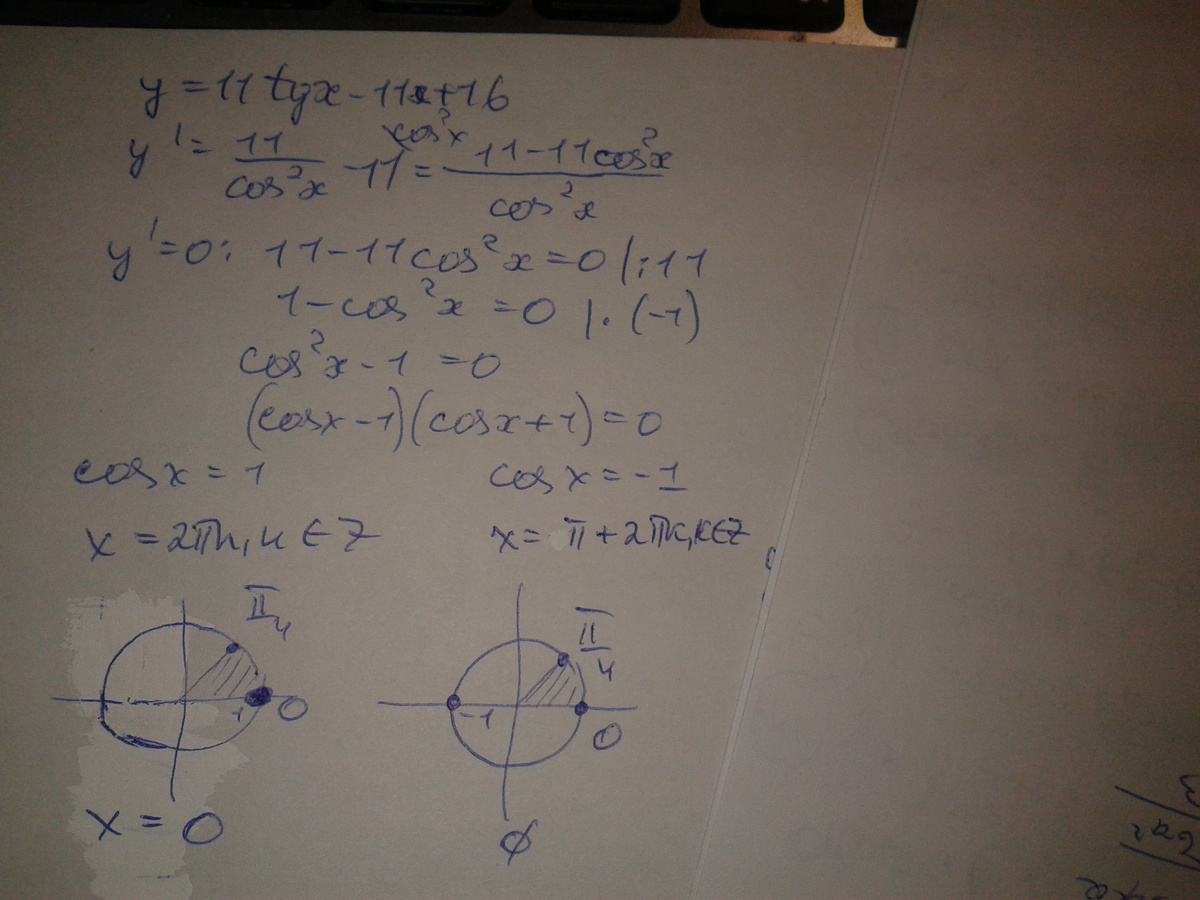 y = 11 tgx - 11x + 16
y' = 11/cos²x - 11/cos²x = (11 - 11cos²x)/cos²x
y' = 0: 11 - 11cos²x = 0 |:11
1 - cos²x = 0 |· (-1)
cos²x - 1 = 0
(cosx - 1)(cosx + 1) = 0
cosx = 1 cosx = -1
x = 2πk, k ∈ Z x = π + 2πk, k ∈ Z
π/4 π/4
1 0 -1 0
x = 0 ∅